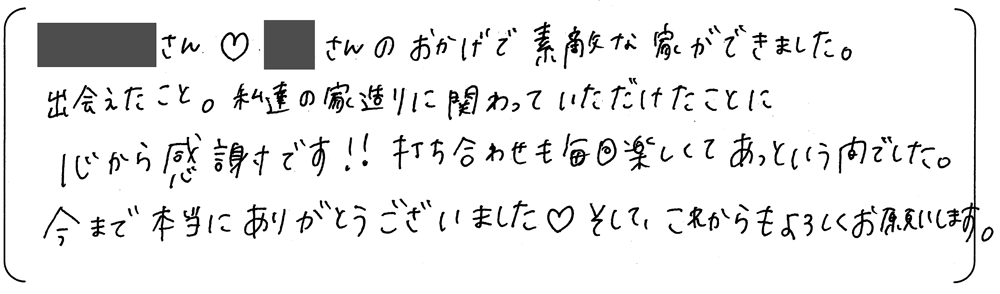 さん♡ さんのおかげで素敵な家ができました。
出会えたこと。私達の家造りに関わっていただけたことに
心から感謝です!! 打ち合わせも毎回楽しくてあっという間でした。
今まで本当にありがとうございました♡そして、これからもよろしくお願いします。